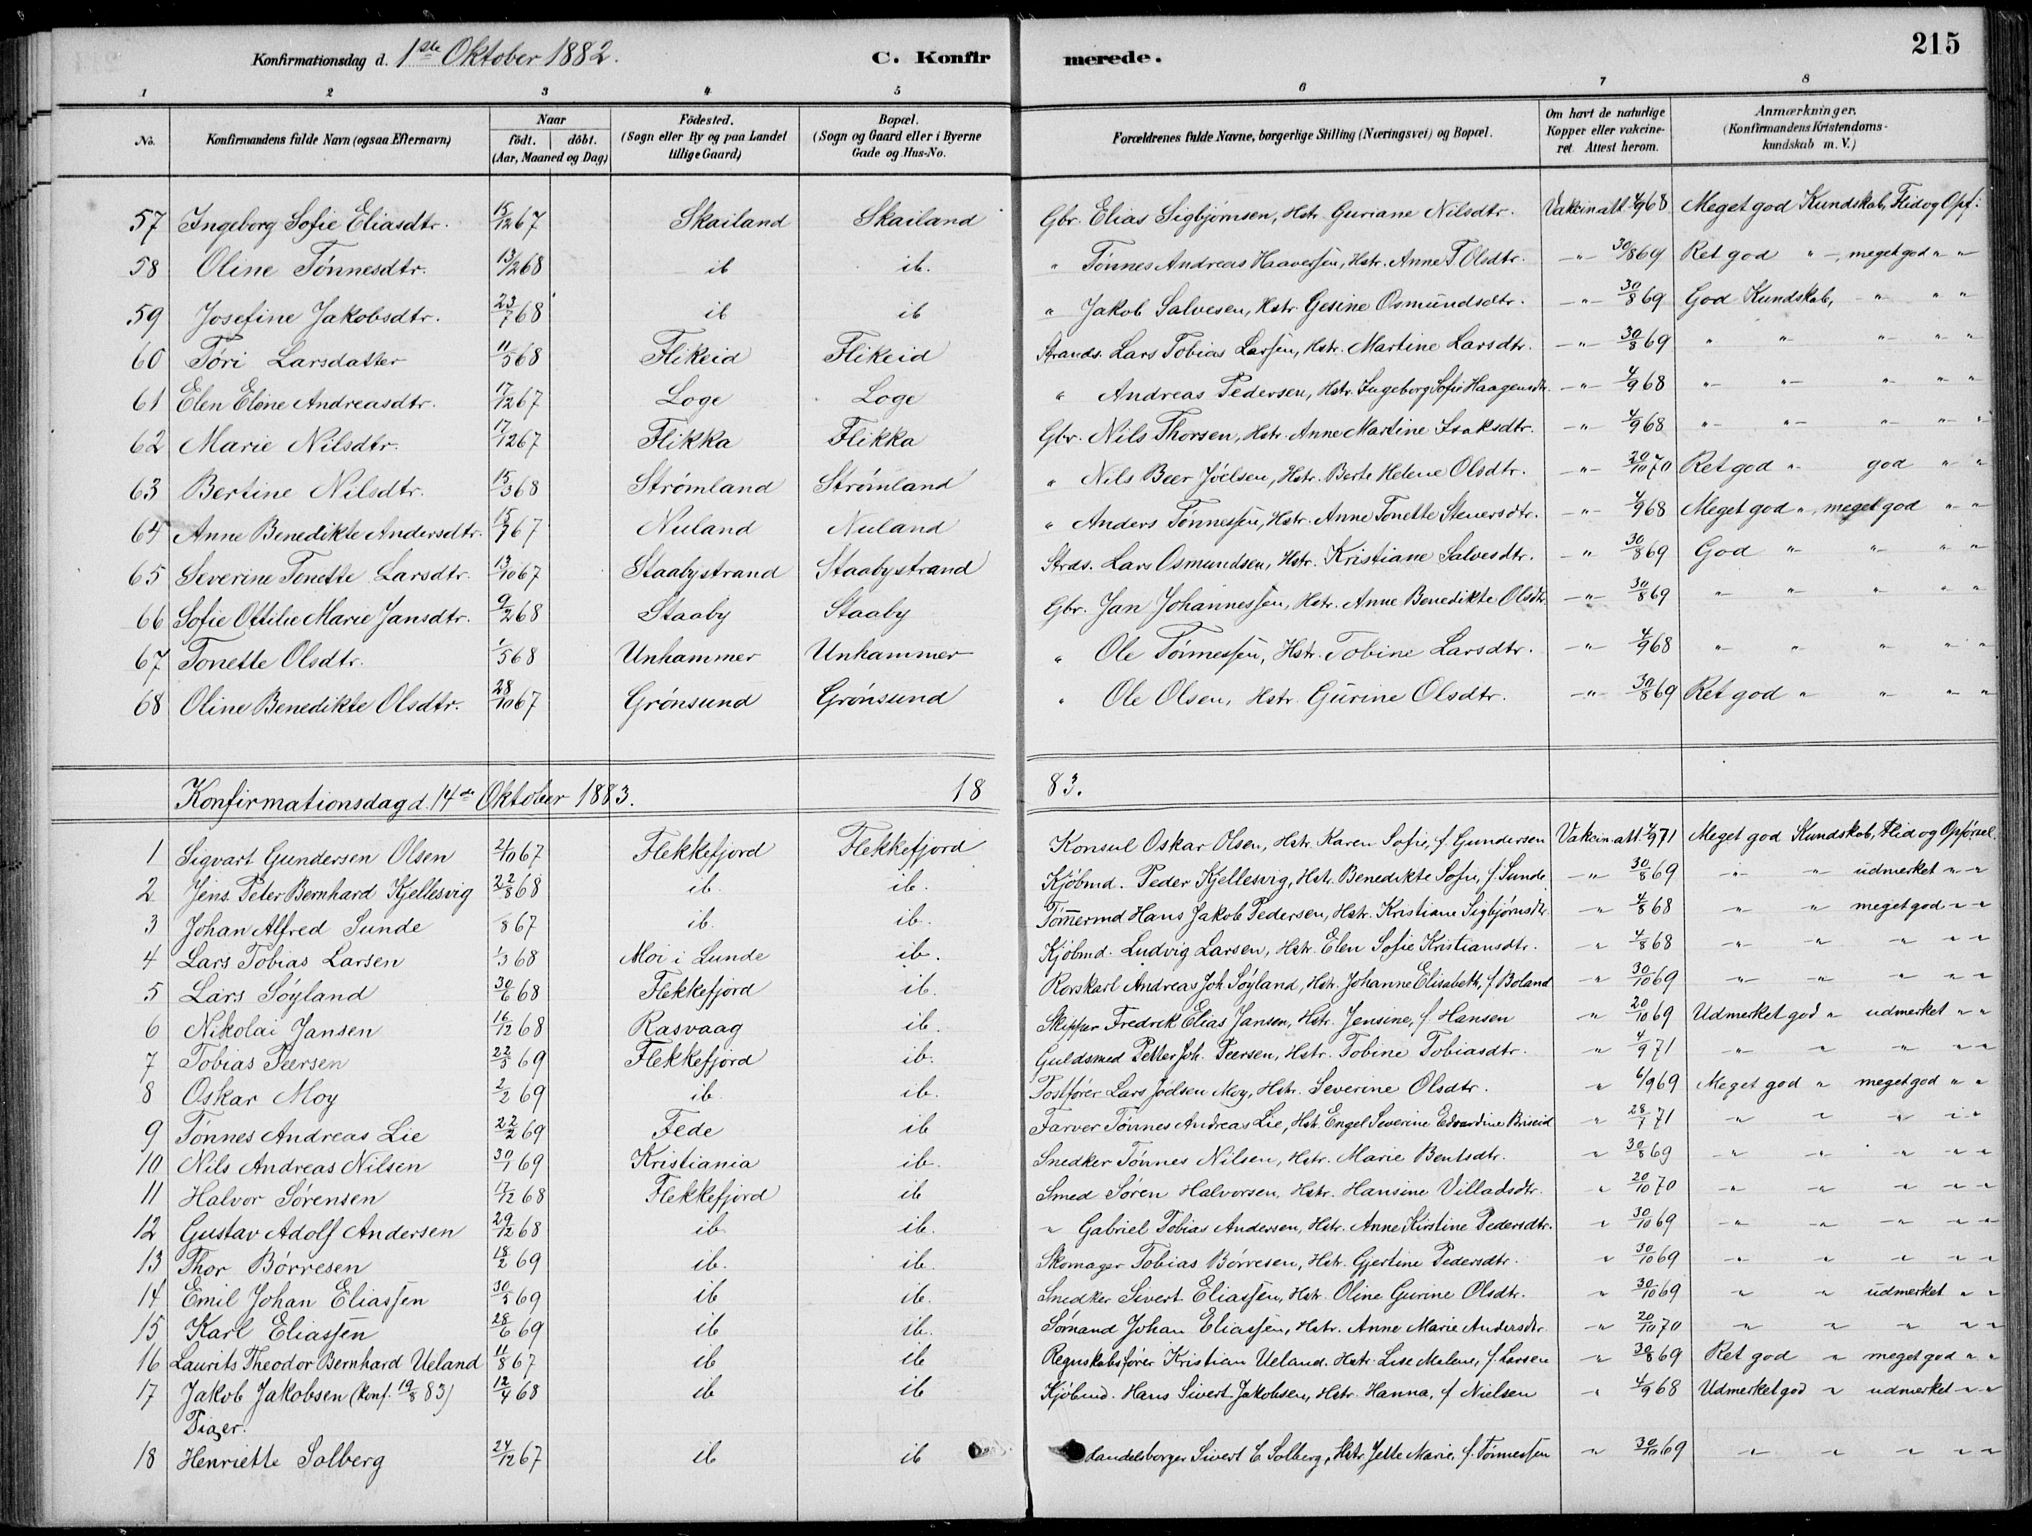 215
Konfirmationsdag d. 1ste Oktober 1882. C. Konfirmerede.
1 2 3 4 5 6 7 8
No. Konfirmandens fulde Navn (ogsaa Efternavn) Naar født. døbt. (Aar, Maaned og Dag) Fødested. (Sogn eller By og paa Landet tillige Gaard) Bopæl. (Sogn og Gaard eller i Byerne Gade og Hus-No. Forældrenes fulde Navne, borgerlige Stilling (Næringsvei) og Bopæl. Om havt de naturlige Kopper eller vakcineret. Attest herom. Anmærkninger, (Konfirmandens Kristendomskundskab m. V.)
57 Ingeborg Sofie Eliasdtr. 15/12 67 Skailand Skailand Gbr. Elias Sigbjørnsen, Hstr. Guriane Nilsdtr. Vakcinatt. 4/9 68 Meget god Kundskab, Flid og Opf:
58 Oline Tønnesdtr. 13/2 68 ib ib. " Tønnes Andreas Haaversen, Hstr. Anne T Olsdtr. -"- 30/8 69 Ret god " -, meget god " "
59 Josefine Jakobsdtr. 23/7 68 ib ib " Jakob Salvesen, Hstr. Gesine Osmundsdtr. -"- 30/8 69 God Kundskab, -"- " "
60 Tori Larsdatter 11/5 68 Flikeid Flikeid Strands. Lars Tobias Larsen, Hstr. Martine Larsdtr. -"- 30/8 69 " " -"- " "
61 Elen Eline Andreasdtr. 17/12 67 Loge Loge " Andreas Pedersen, Hstr. Ingeborg Sofie Haagensdtr. -"- 4/9 68 " " " " "
62 Marie Nilsdtr. 17/12 67 Flikka Flikka Gbr. Nils Thorsen, Hstr. Anne Martine Isaksdtr. -"- 4/9 68 " " " " "
63 Bertine Nilsdtr. 15/3 68 Strømland Strømland " Nils Beer Jøelsen, Hstr. Berte Helene Olsdtr. -"- 20/10 70 Ret god " god " "
64 Anne Benedikte Andersdtr. 15/7 67 Nuland Nuland " Anders Tønnessen, Hstr. Anne Tonette Stenersdtr. -"- 4/9 68 Meget god ", meget god " "
65 Severine Tonette Larsdtr. 13/10 67 Staabystrand Staabystrand Strds. Lars Osmundsen, Hstr. Kristiane Salvesdtr. -"- 30/8 69 God " " " "
66 Sofie Ottilie Marie Jansdtr. 9/2 68 Staaby Staaby Gbr. Jan Johannessen, Hstr. Anne Benedikte Olsdtr. -"- 30/8 69 " " " " "
67 Tonette Olsdtr. 1/5 68 Unhammer Unhammer " Ole Tønnessen, Hstr. Tobine Larsdtr. -"- 4/9 68 " " " " "
68 Oline Benedikte Olsdtr. 28/10 67 Grønsund Grønsund " Ole Olsen, Hstr. Gurine Olsdtr. -"- 30/8 69 Ret god " " " "
Konfirmationsdag d. 14de Oktober 1883. 1883.
1 Sigvart Gundersen Olsen 2/10 67 Flekkefjord Flekkefjord Konsul Oskar Olsen, Hstr. Karen Sofie, f. Gundersen Vakcinatt. 4/9 71 Meget god Kundskab, Flid og Opførsel
2 Jens Peter Bernhard Kjellesvig 22/8 68 ib. ib. Kjøbmd. Peder Kjellesvig, Hstr. Benedikte Sofie, f. Sunde -"- 30/8 69 " " udmerket " "
3 Johan Alfred Sunde /8 67 ib. ib. Tømmermd Hans Jakob Pedersen, Hstr. Kristiane Sigbjørnsdtr. " 4/8 68 " " meget god " "
4 Lars Tobias Larsen 1/3 68 Moi i Lunde ib. Kjøbmd. Ludvig Larsen, Hstr. Elen Sofie Kristiansdtr. " 4/8 68 " " " " "
5 Lars Søyland 30/6 68 Flekkefjord ib. Rorskarl Andreas Joh Søyland, Hstr. Johanne Elisabeth, f. Boland " 30/10 69 " " " " "
6 Nikolai Jansen 16/12 68 Rasvaag ib. Skipper Fredrik Elias Jansen, Hstr. Jensine, f. Hansen " 20/10 69 Udmerket god " udmerket " "
7 Tobias Peersen 22/3 69 Flekkefjord ib. Guldsmed Petter Joh. Peersen, Hstr. Tobine Tobiasdtr. " 4/9 71 " " " " "
8 Oskar Moy 2/2 69 ib. ib. Postfører Lars Jøelsen Moy, Hstr. Severine Olsdtr. " 6/9 69 Meget god " meget god " "
9 Tønnes Andreas Lie 22/2 69 Fede ib Farver Tønnes Andreas Lie, Hstr. Engel Severine Edvardine Briseid " 28/7 71 " " " " "
10 Nils Andreas Nilsen 30/1 69 Kristiania ib. Snedker Tønnes Nilsen, Hstr. Marie Bentsdtr. " 30/8 69 " " " " "
11 Halvor Sørensen 17/12 68 Flekkefjord ib Smed Søren Halvorsen, Hstr. Hansine Villadsdtr. " 20/10 70 " " " " "
12 Gustav Adolf Andersen 29/12 68 ib. ib. " Gabriel Tobias Andersen, Hstr. Anne Kirstine Pedersdtr. " 30/10 69 " " " " "
13 Thor Børresen 18/2 69 ib. ib. Skomager Tobias Børresen, Hstr. Gjertine Pedersdtr. " 30/10 69 " " " " "
14 Emil Johan Eliassen 30/3 69 ib ib. Snedker Sivert Eliassen, Hstr. Oline Gurine Olsdtr. " 30/10 69 " " udmerket " "
15 Karl Eliassen 28/6 69 ib ib. Sømand Johan Eliassen, Hstr. Anne Marie Andersdtr. " 20/10 70 " " " " "
16 Laurits Theodor Bernhard Ueland 11/8 67 ib ib Regnskabsfører Kristian Ueland. Hstr. Lise Malene, f. Larsen " 30/8 69 Ret god " meget god " "
17 Jakob Jakobsen (konf. 19/8 83) 12/4 68 ib ib Kjøbmd. Hans Sivert Jakobsen, Hstr. Hanna, f Nielsen " 4/9 68 Udmerket god " udmerket " "
Piger.
18 Henriette Solberg 24/12 67 ib ib Handelsborger Sivert C Solberg, Hstr. Jette Marie, f. Tønnessen " 30/10 69 " " " " "